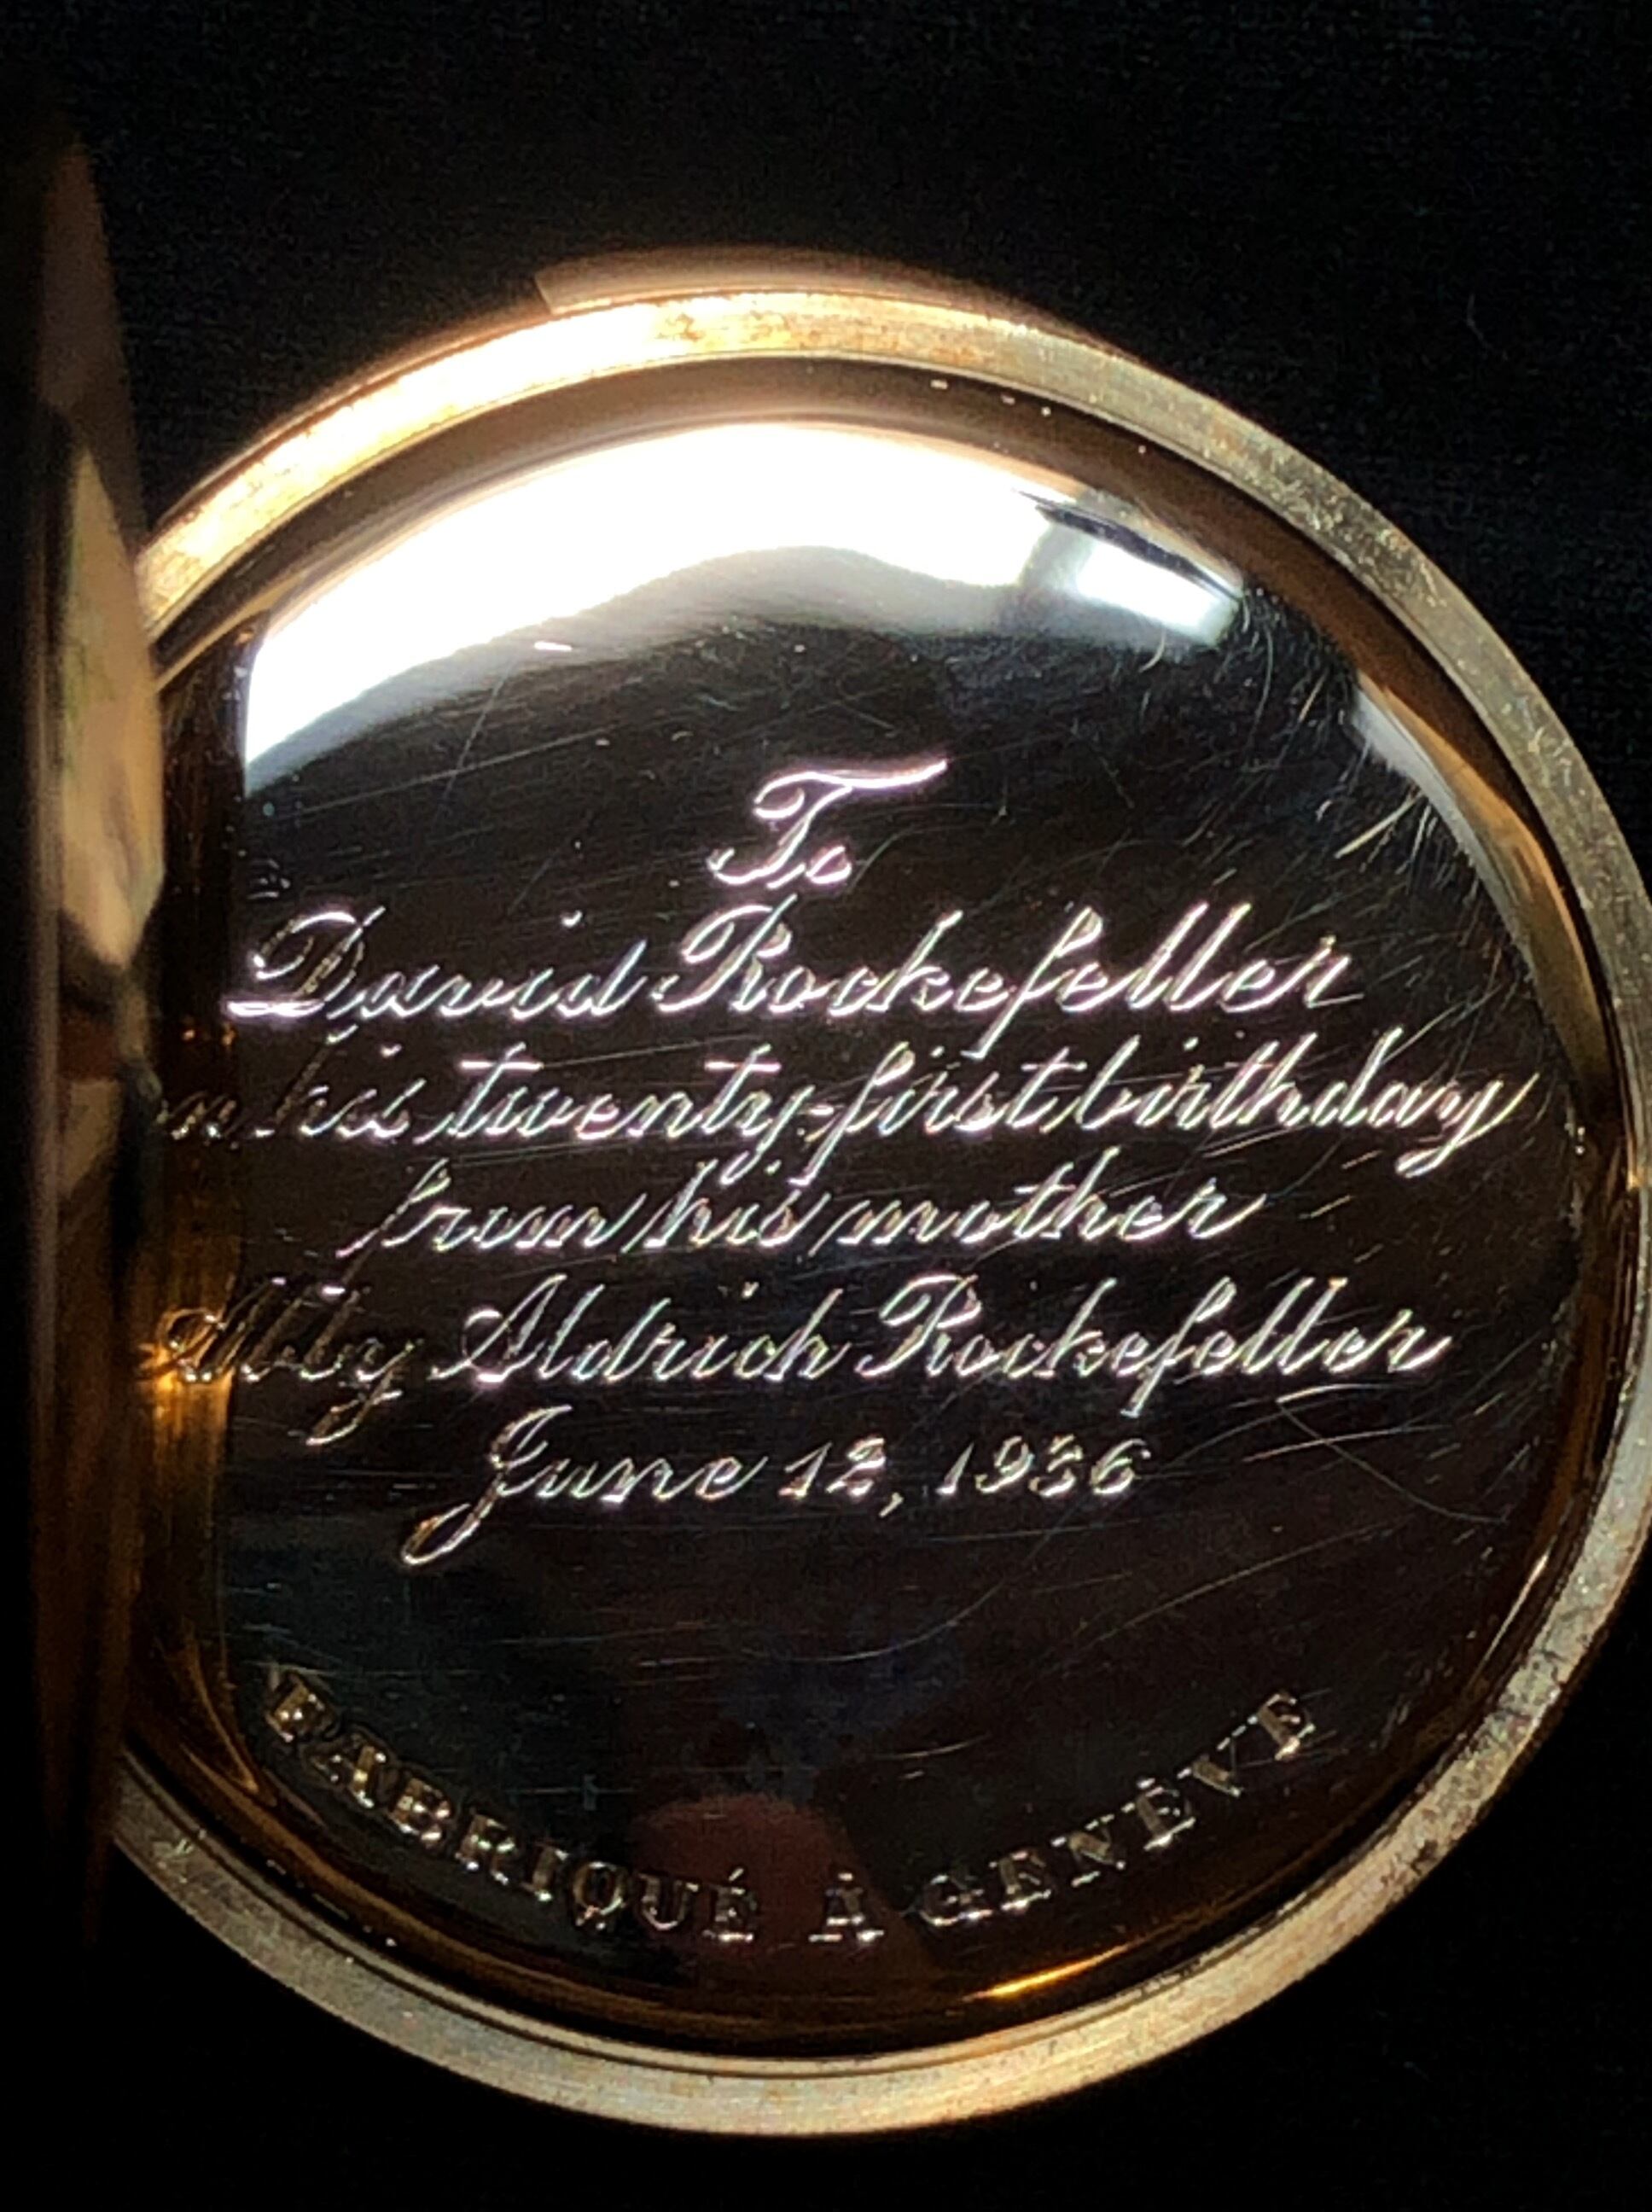 To
David Rockefeller
on his twenty-first birthday
from his mother
Abby Aldrich Rockefeller
June 12, 1936
FABRIQUÉ À GENÈVE